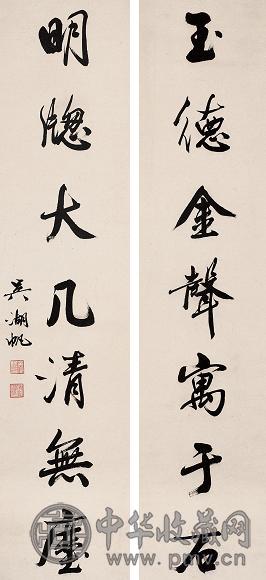 玉德金聲寓于石
明牎大几清無塵
吳湖帆
中华收藏网
www.pmcn.cn